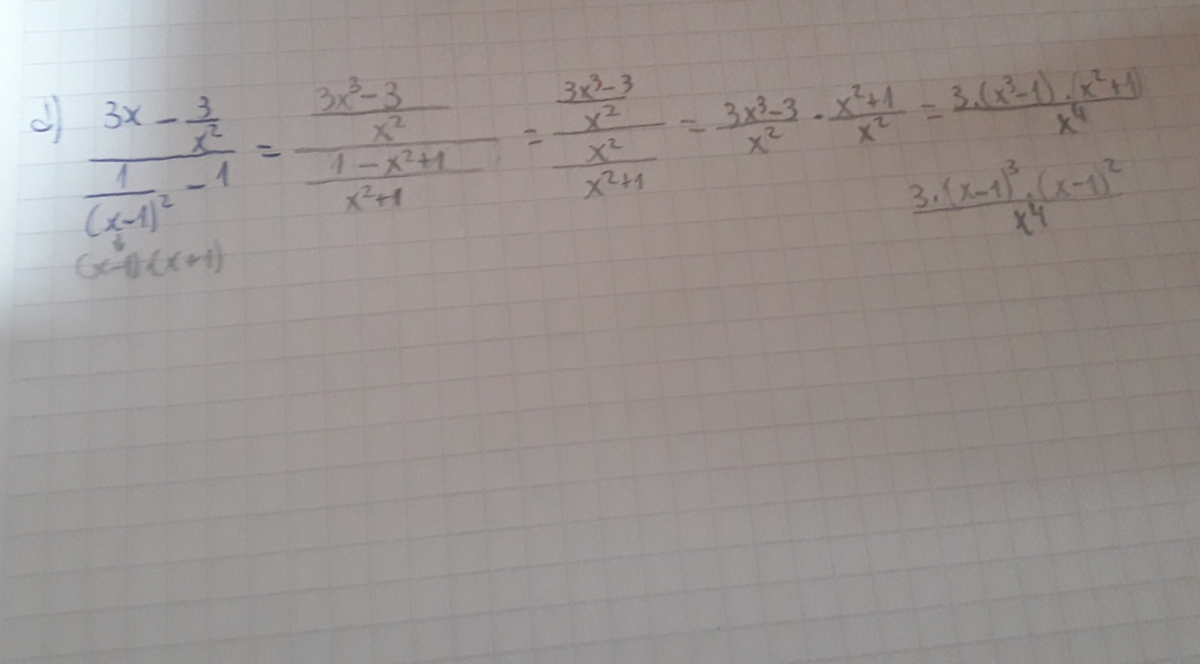 d) (3x - 3/x²)/(1/(x-1)² - 1) = ((3x³-3)/x²)/((1-x²+1)/(x²+1)) = ((3x³-3)/x²)/(x²/(x²+1)) = (3x³-3)/x² · (x²+1)/x² = (3.(x³-1).(x²+1))/x⁴
(3.(x-1)³.(x-1)²)/x⁴
(x-1)·(x+1)